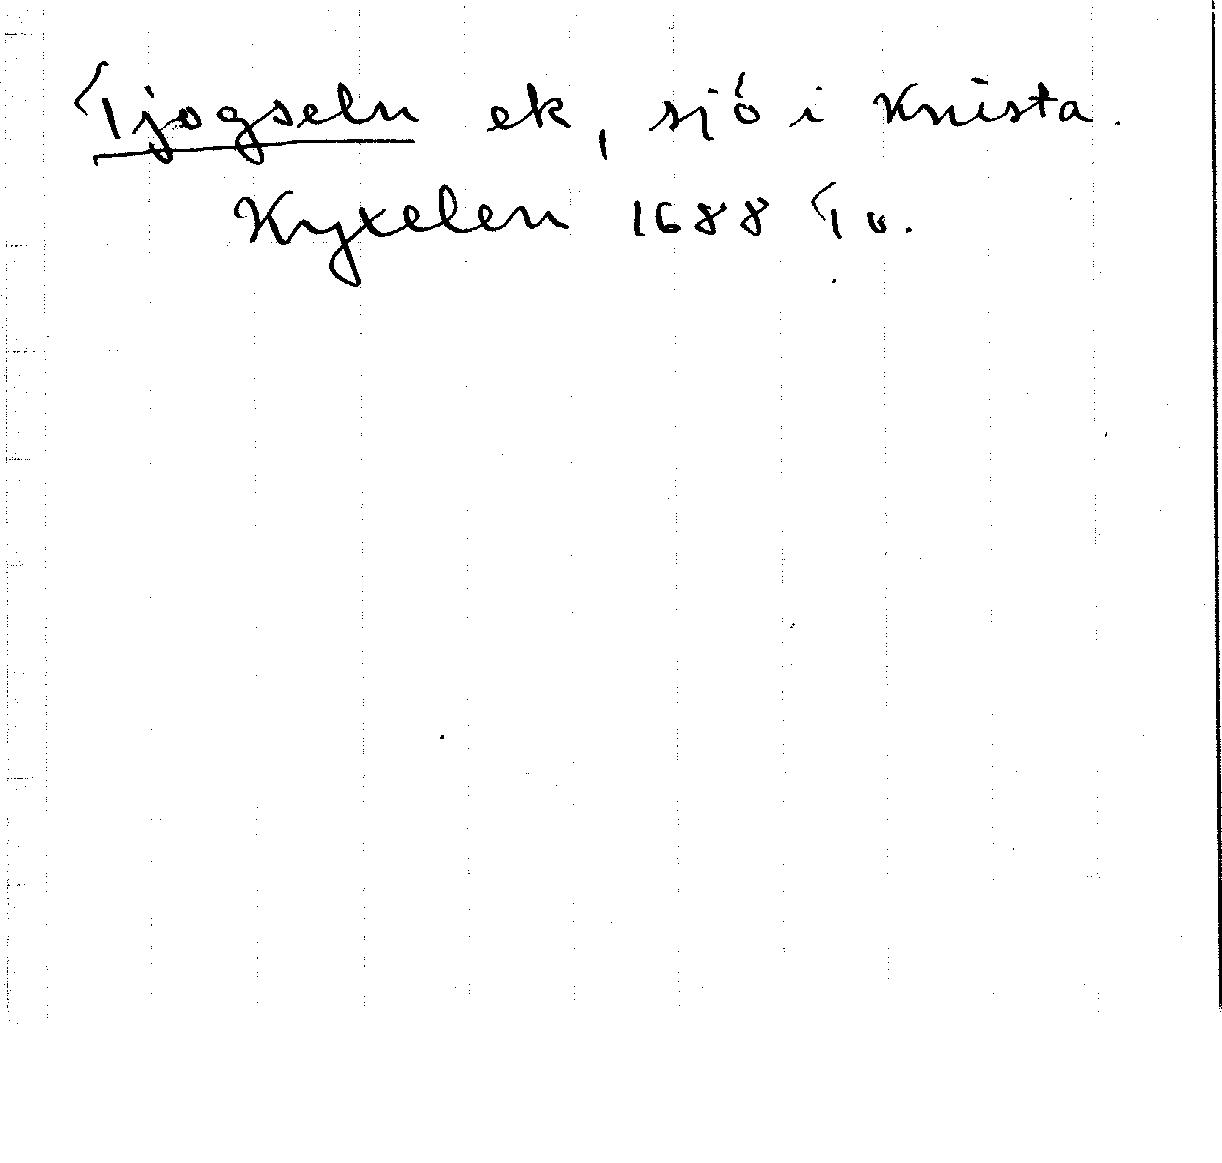 Tjogseln ek, sjö i Knista.
Kyxelen 1688 Tv.